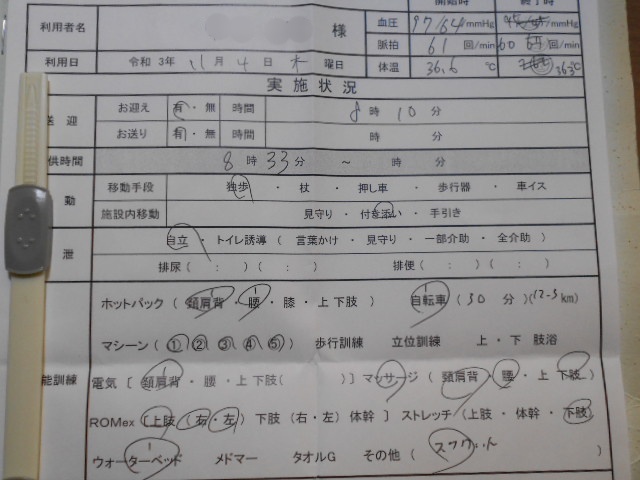 開始時 終了時
利用者名 様 血圧 97/64 mmHg /mmHg
脈拍 61 回/min 60 回/min
利用日 令和 3年 11 月 4 日 木 曜日 体温 36.6 ℃ 36.3℃
実施状況
送迎 お迎え 有・無 時間 8 時 10 分
お送り 有・無 時間 時 分
供時間 8 時 33 分 ～ 時 分
動 移動手段 独歩 ・ 杖 ・ 押し車 ・ 歩行器 ・ 車イス
施設内移動 見守り ・ 付き添い ・ 手引き
泄 自立 ・ トイレ誘導 ( 言葉かけ ・ 見守り ・ 一部介助 ・ 全介助 )
排尿 ( : ) ( : ) 排便 ( : ) ( : )
ホットパック ( 頚肩背 ・ 腰 ・ 膝 ・ 上 下肢 ) 自転車 ( 30 分 ) (12-3 km)
マシーン ( ① ② ③ ④ ⑤ ) 歩行訓練 立位訓練 上 ・ 下 肢浴
能訓練 電気 [ 頚肩背 ・ 腰 ・ 上 下肢( )] マッサージ ( 頚肩背 ・ 腰 ・ 上 下肢 )
ROMex [上肢 (右・左) 下肢 (右・左) 体幹 ] ストレッチ (上肢 ・ 体幹 ・ 下肢)
ウォーターベッド メドマー タオルG その他 ( スクワット )